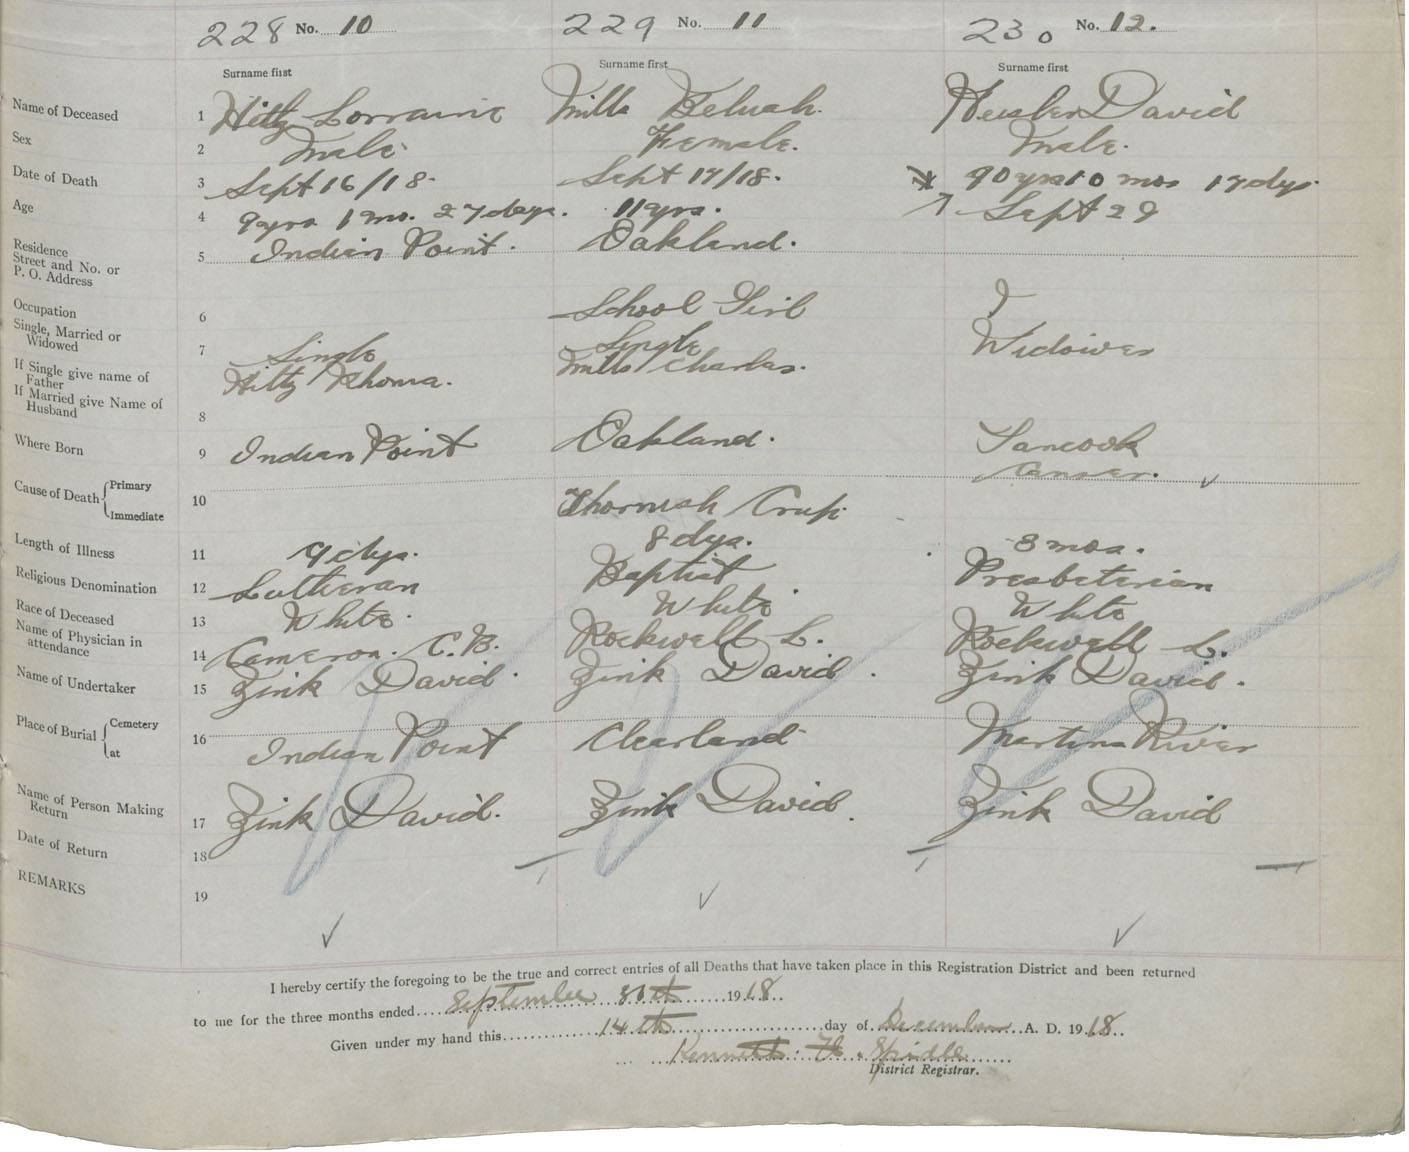 228 No. 10 229 No. 11 230 No. 12.
Surname first Surname first Surname first
Name of Deceased 1 Hiltz Lorraine Mills Beluah. Heisler David
Sex 2 Male Female. Male.
Date of Death 3 Sept 16/18. Sept 17/18. 90 yrs 10 mos 17 dys.
Age 4 9 yrs 1 mo. 27 days. 11 yrs. Sept 29
Residence
Street and No. or
P. O. Address 5 Indian Point. Oakland.
Occupation 6 School Girl
Single, Married or
Widowed 7 Single Single Widower
If Single give name of
Father Hiltz Thoma. Mills Charles.
If Married give Name of
Husband 8
Where Born 9 Indian Point Oakland. Tancook
Cause of Death Primary Cancer.
Immediate 10 Crup.
Length of Illness 11 9 dys. 8 dys. 3 mos.
Religious Denomination 12 Lutheran Baptist Presbeterian
Race of Deceased 13 White. White. White
Name of Physician in
attendance 14 Cameron. C.B. Rockwell L. Rockwell L.
Name of Undertaker 15 Zink David. Zink David. Zink David.
Place of Burial Cemetery
at 16 Indian Point Clearland Martins River
Name of Person Making
Return 17 Zink David. Zink David. Zink David
Date of Return 18
REMARKS 19
I hereby certify the foregoing to be the true and correct entries of all Deaths that have taken place in this Registration District and been returned
to me for the three months ended September 30th 1918
Given under my hand this 14th day of December A. D. 1918.
Kenneth Spindle
District Registrar.